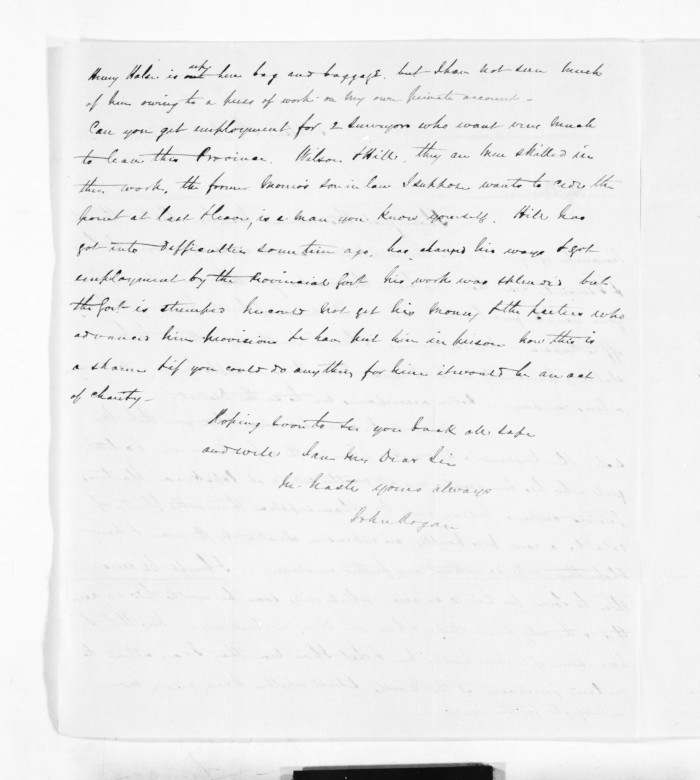 Henry Halse is up here bag and baggage, but I have not seen much
of him owing to a press of work on my own private account -
Can you get employment for 2 Surveyors who want very much
to leave this Province. Wilson & Hill, they are men skilled in
their work, the former son in law I suppose wants to cede the
point at last & leave, is a man you know yourself. Hill has
got into difficulties some time ago, has changed his ways & got
employment by the Provincial Govt his work was splendid but
the Govt is stumped he could not get his money & the parties who
advanced him provisions &c have put him in prison now this is
a shame & if you could do anything for him it would be an act
of charity -
Hoping soon to see you back all safe
and well I am My Dear Sir
In haste yours always
John Rogan